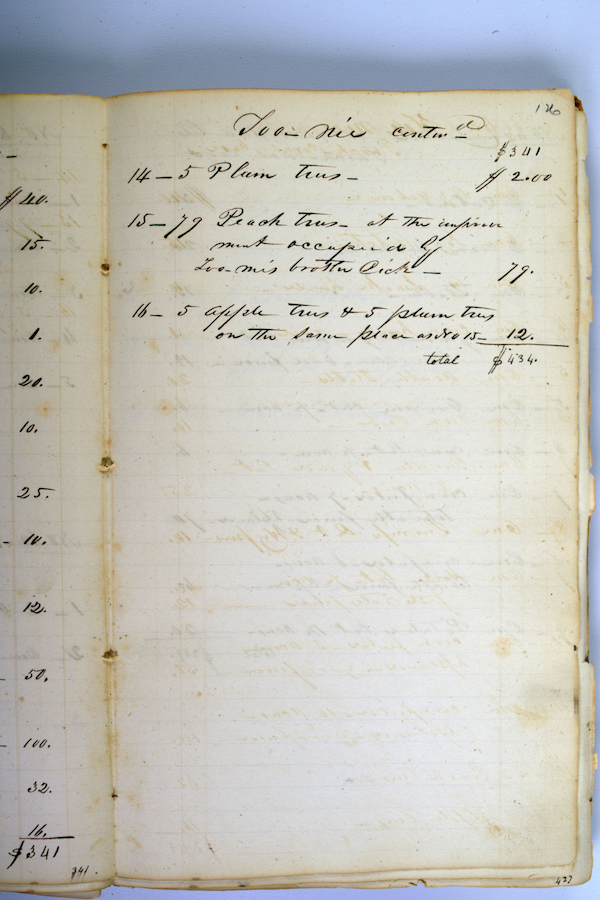 $40.
15.
10.
1.
20.
10.
25.
10.
12.
50.
100.
32.
16.
$341
341
126
Too-nie contin d
$341
14 - 5 Plum trees - $2.00
15 - 79 Peach trees - at the improve
ment occupied by
Too-nies brother Dick - 79.
16 - 5 apple trees & 5 plum trees
on the same place as No 15 - 12.
total $434.
427